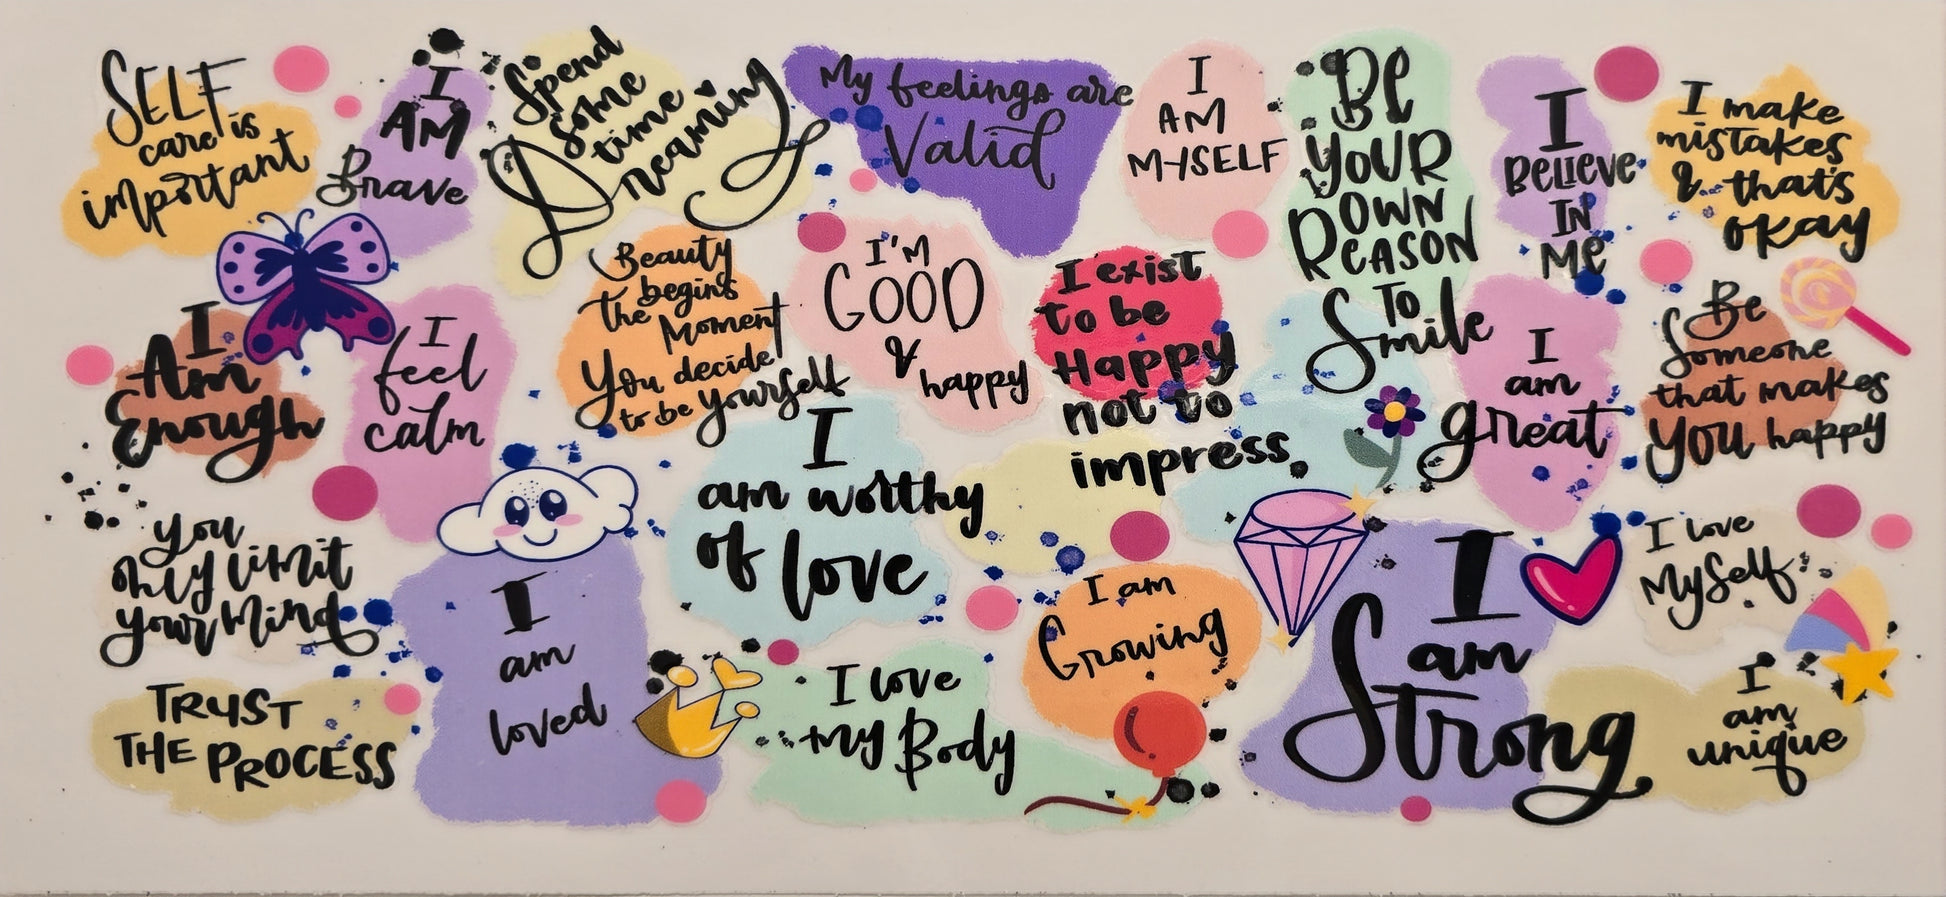 SELF
care is
important
I
AM
Brave
Spend
some
time
Dreaming
My feelings are
Valid
I
AM
MYSELF
BE
YOUR
OWN
REASON
TO
Smile
I
BELIEVE
IN
ME
I make
mistakes
& that's
okay
I
Am
Enough
I
feel
calm
Beauty
begins
The
Moment
You decide
to be yourself
I'M
GOOD
&
happy
I exist
to be
Happy
not to
impress
I
am
great
Be
Someone
that makes
you happy
You
only limit
your Mind
I
am
loved
I
am worthy
of love
I am
Growing
I
am
Strong
I love
Myself
TRUST
THE PROCESS
I love
my Body
I
am
unique